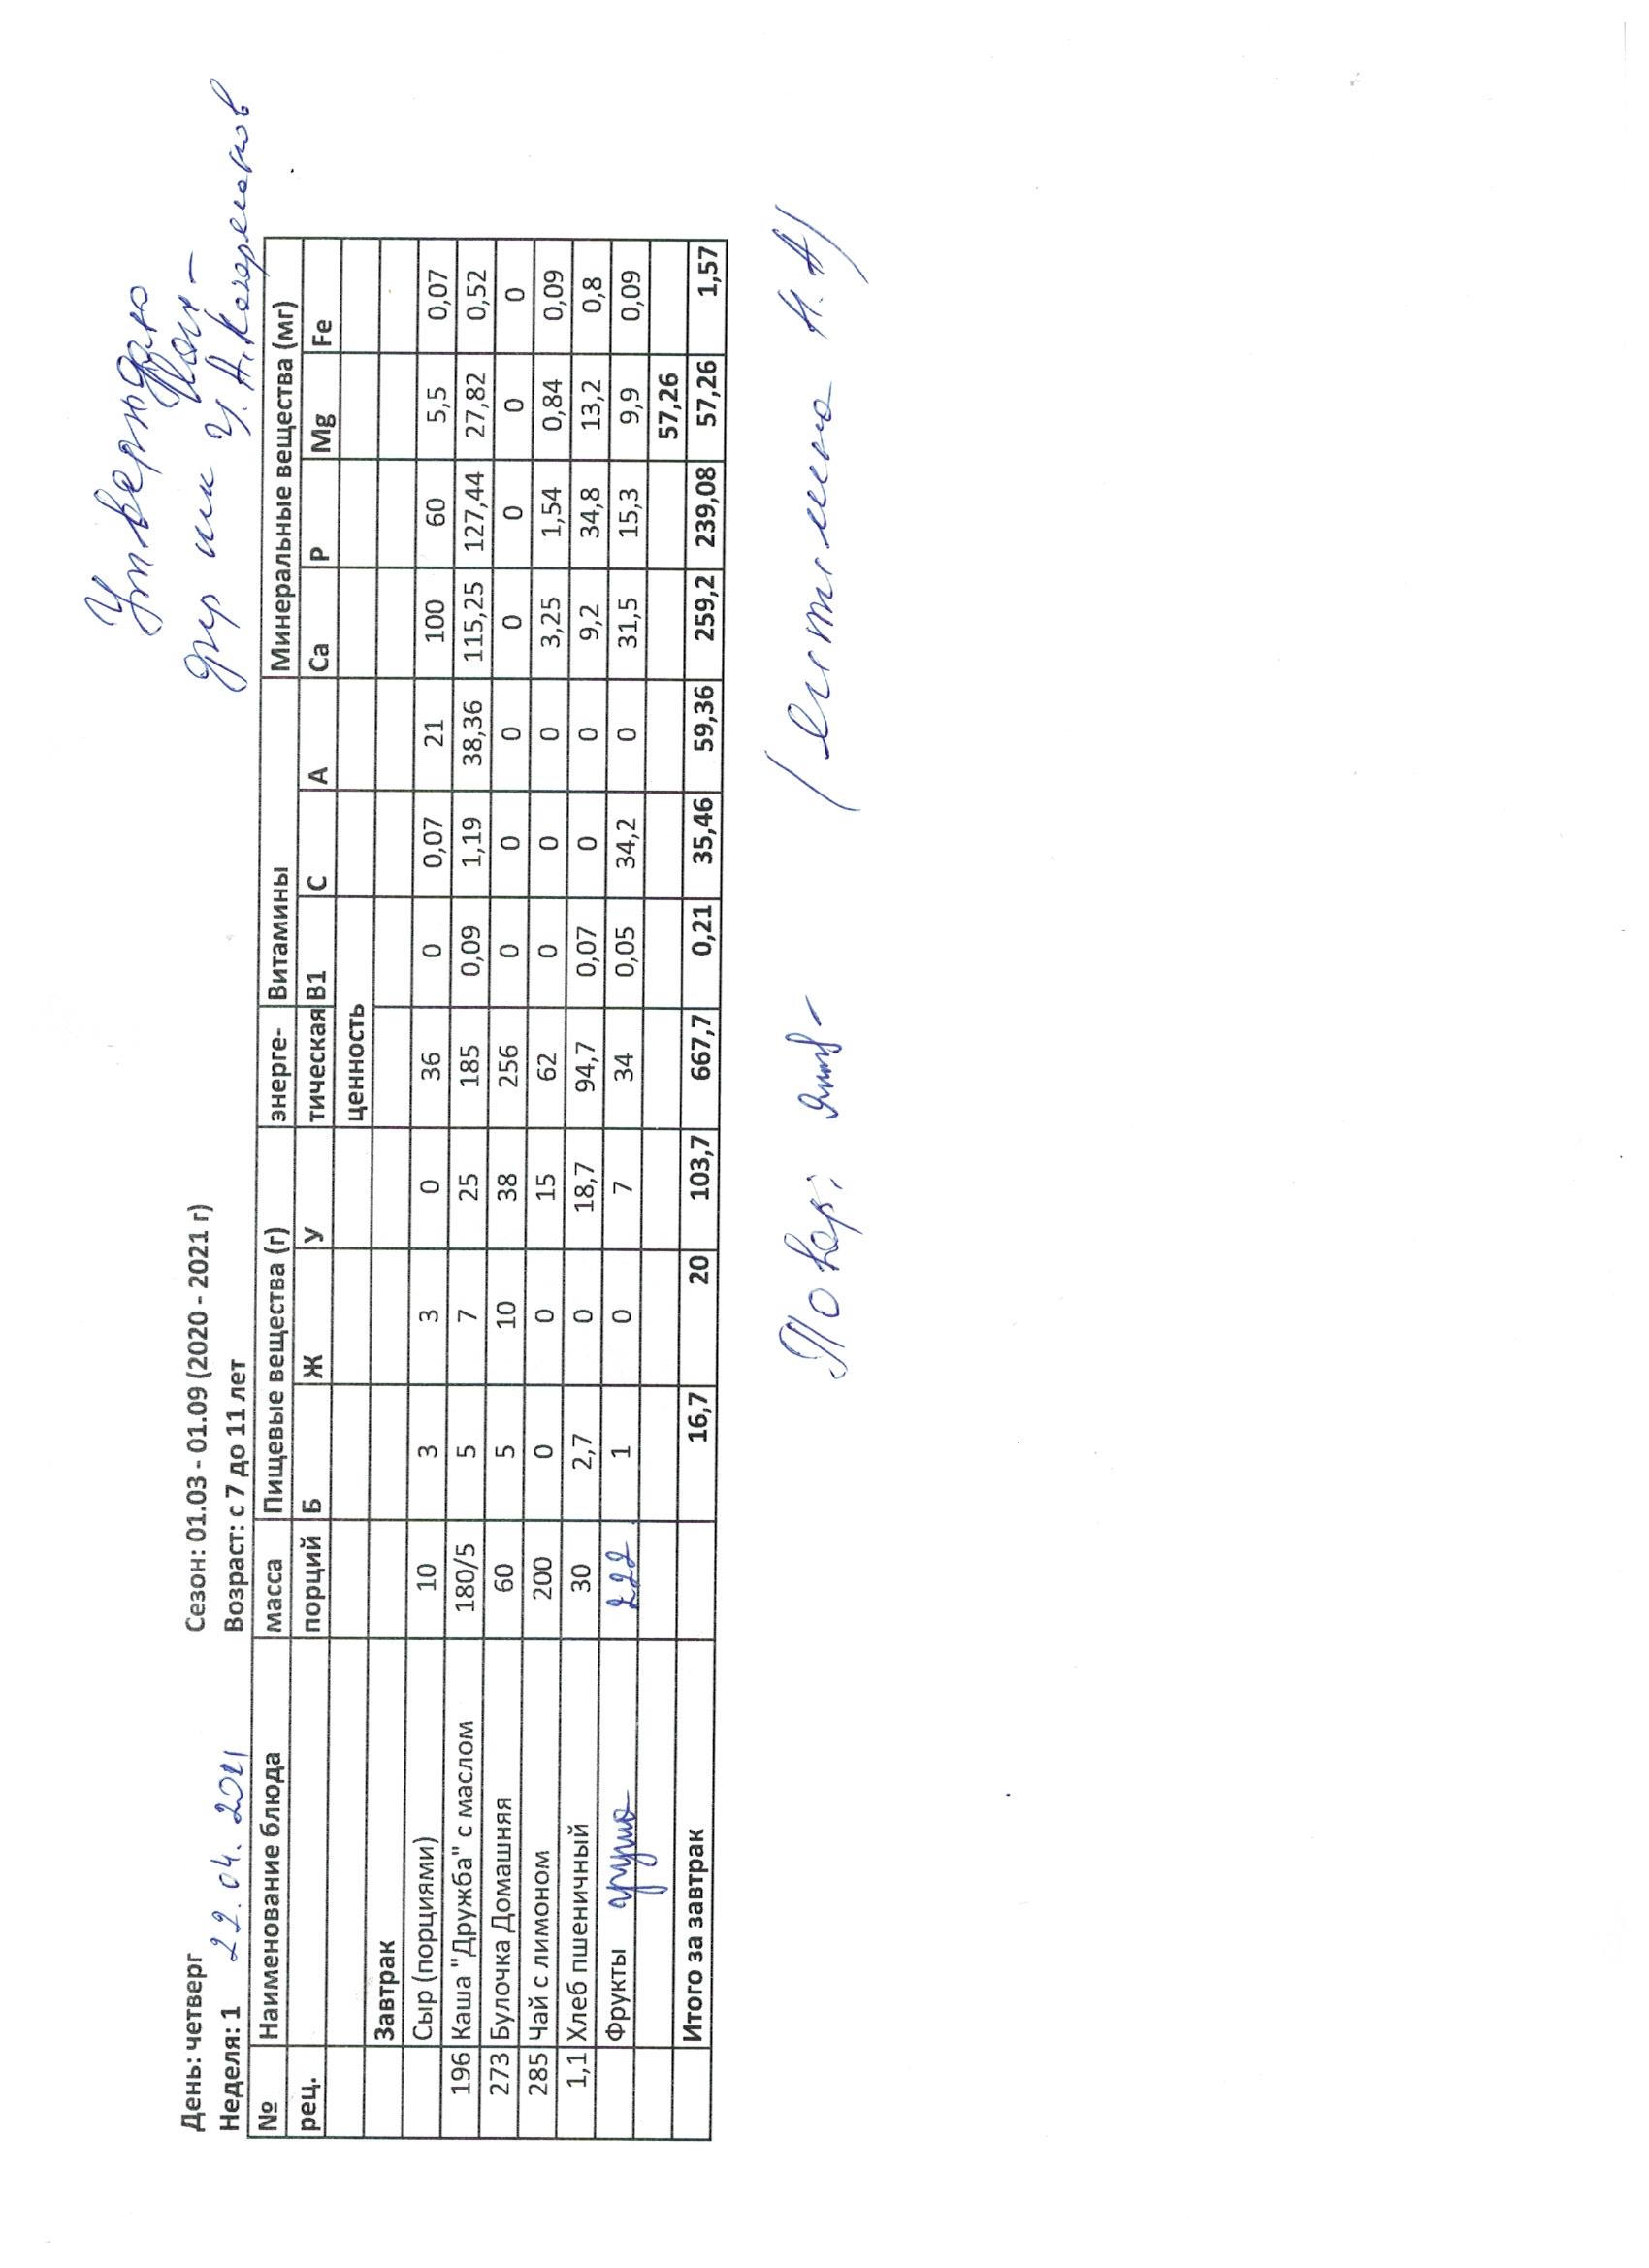 Утверждаю
дир шк
День: четверг Сезон: 01.03 - 01.09 (2020 - 2021 г)
Неделя: 1 22.04.2021 Возраст: с 7 до 11 лет
№ Наименование блюда масса Пищевые вещества (г) энерге- Витамины Минеральные вещества (мг)
рец. порций Б Ж У тическая В1 С А Ca P Mg Fe
ценность
Завтрак
Сыр (порциями) 10 3 3 0 36 0 0,07 21 100 60 5,5 0,07
196 Каша "Дружба" с маслом 180/5 5 7 25 185 0,09 1,19 38,36 115,25 127,44 27,82 0,52
273 Булочка Домашняя 60 5 10 38 256 0 0 0 0 0 0 0
285 Чай с лимоном 200 0 0 15 62 0 0 0 3,25 1,54 0,84 0,09
1,1 Хлеб пшеничный 30 2,7 0 18,7 94,7 0,07 0 0 9,2 34,8 13,2 0,8
Фрукты груша 222 1 0 7 34 0,05 34,2 0 31,5 15,3 9,9 0,09
57,26
Итого за завтрак 16,7 20 103,7 667,7 0,21 35,46 59,36 259,2 239,08 57,26 1,57
Повар: